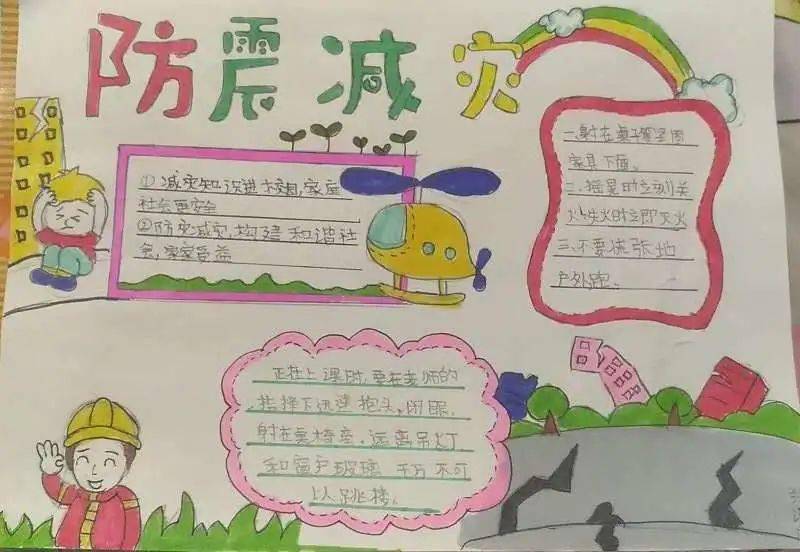 防震减灾
①减灾知识进校园,家庭
社会更安全
②防灾减灾,构建和谐社
会,家家受益
一.射在桌子等坚固
家具下面。
二.摇晃时立刻关
火,失火时立即灭火
三.不要慌张地
户外跑。
正在上课时,要在老师的
指挥下迅速抱头,闭眼.
射在桌椅 远离吊灯,
和窗户玻璃 千万不可
以跳楼。